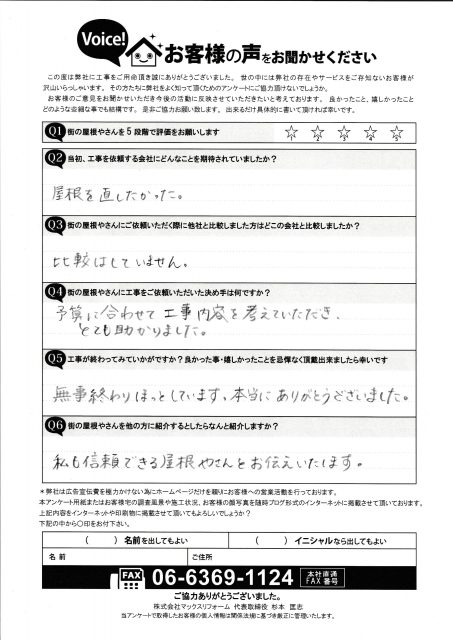 Voice!
お客様の声をお聞かせください
この度は弊社に工事をご用命頂き誠にありがとうございました。 世の中には弊社の存在やサービスをご存知ないお客様が
沢山いらっしゃいます。 その方たちに弊社をよく知って頂くためのアンケートにご協力頂けないでしょうか。
お客様のご意見をお聞かせいただき今後の活動に反映させていただきたいと考えております。 良かったこと、嬉しかったこと
どのような些細な事でも結構です。 是非ご協力お願い致します。 出来るだけ具体的に書いて頂ければ幸いです。
Q1 街の屋根やさんを5段階で評価をお願いします ☆1 ☆2 ☆3 ☆4 ☆5
Q2 当初、工事を依頼する会社にどんなことを期待されていましたか？
屋根を直したかった。
Q3 街の屋根やさんにご依頼いただく際に他社と比較しました方はどこの会社と比較しましたか？
比較はしていません。
Q4 街の屋根やさんに工事をご依頼いただいた決め手は何ですか？
予算に合わせて工事内容を考えていただき、
とても助かりました。
Q5 工事が終わってみていかがですか？良かった事・嬉しかったことを忌憚なく頂戴出来ましたら幸いです
無事終わりほっとしています。本当にありがとうございました。
Q6 街の屋根やさんを他の方に紹介するとしたらなんと紹介しますか？
私も信頼できる屋根やさんとお伝えいたします。
＊弊社は広告宣伝費を極力かけない為にホームページだけを頼りにお客様への営業活動を行っております。
本アンケート用紙またはお客様宅の調査風景や施工状況、お客様の顔写真を随時ブログ形式のインターネットに掲載させて頂いております。
上記内容をインターネットや印刷物に掲載させて頂いてもよろしいでしょうか？
下記の中から〇印をお付下さい。
（　　）名前を出してもよい （　　）イニシャルなら出してもよい
名前 ご住所
FAX 06-6369-1124 本社直通 FAX番号
ご協力ありがとうございました。
株式会社マックスリフォーム 代表取締役 杉本 匡志
当アンケートで取得したお客様の個人情報は関係法規に基づき厳正に管理いたします。